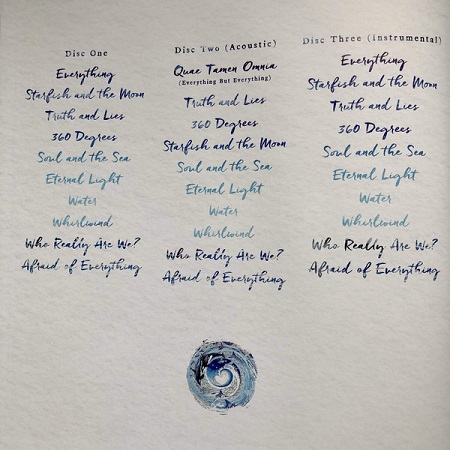 Disc One
Everything
Starfish and the Moon
Truth and Lies
360 Degrees
Soul and the Sea
Eternal Light
Water
Whirlwind
Who Really Are We?
Afraid of Everything
Disc Two (Acoustic)
Quae Tamen Omnia
(Everything But Everything)
Truth and Lies
360 Degrees
Starfish and the Moon
Soul and the Sea
Eternal Light
Water
Whirlwind
Who Really Are We?
Afraid of Everything
Disc Three (Instrumental)
Everything
Starfish and the Moon
Truth and Lies
360 Degrees
Soul and the Sea
Eternal Light
Water
Whirlwind
Who Really Are We?
Afraid of Everything